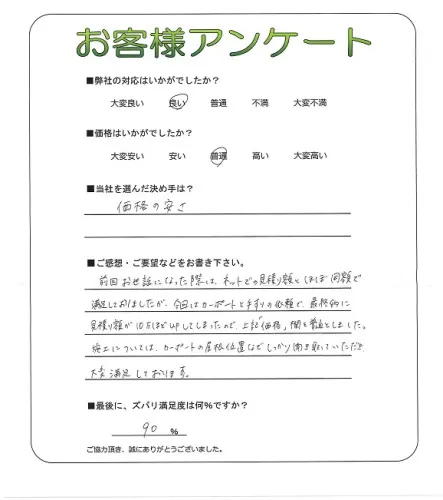 お客様アンケート
■弊社の対応はいかがでしたか?
大変良い 良い 普通 不満 大変不満
■価格はいかがでしたか?
大変安い 安い 普通 高い 大変高い
■当社を選んだ決め手は?
価格の安さ
■ご感想・ご要望などをお書き下さい。
前回お世話になった際は、ネットでの見積り額とほぼ同額で
満足しておりましたが、今回はカーポートと手すりの依頼で、最終的に
見積り額が10万ほどUPしてしまったので、上記価格欄を普通としました。
施工については、カーポートの屋根位置などしっかり聞き取っていただき
大変満足しております。
■最後に、ズバリ満足度は何%ですか?
90 %
ご協力頂き、誠にありがとうございました。